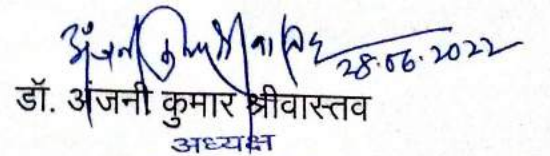 28.06.2022
डॉ. अंजनी कुमार श्रीवास्तव
अध्यक्ष